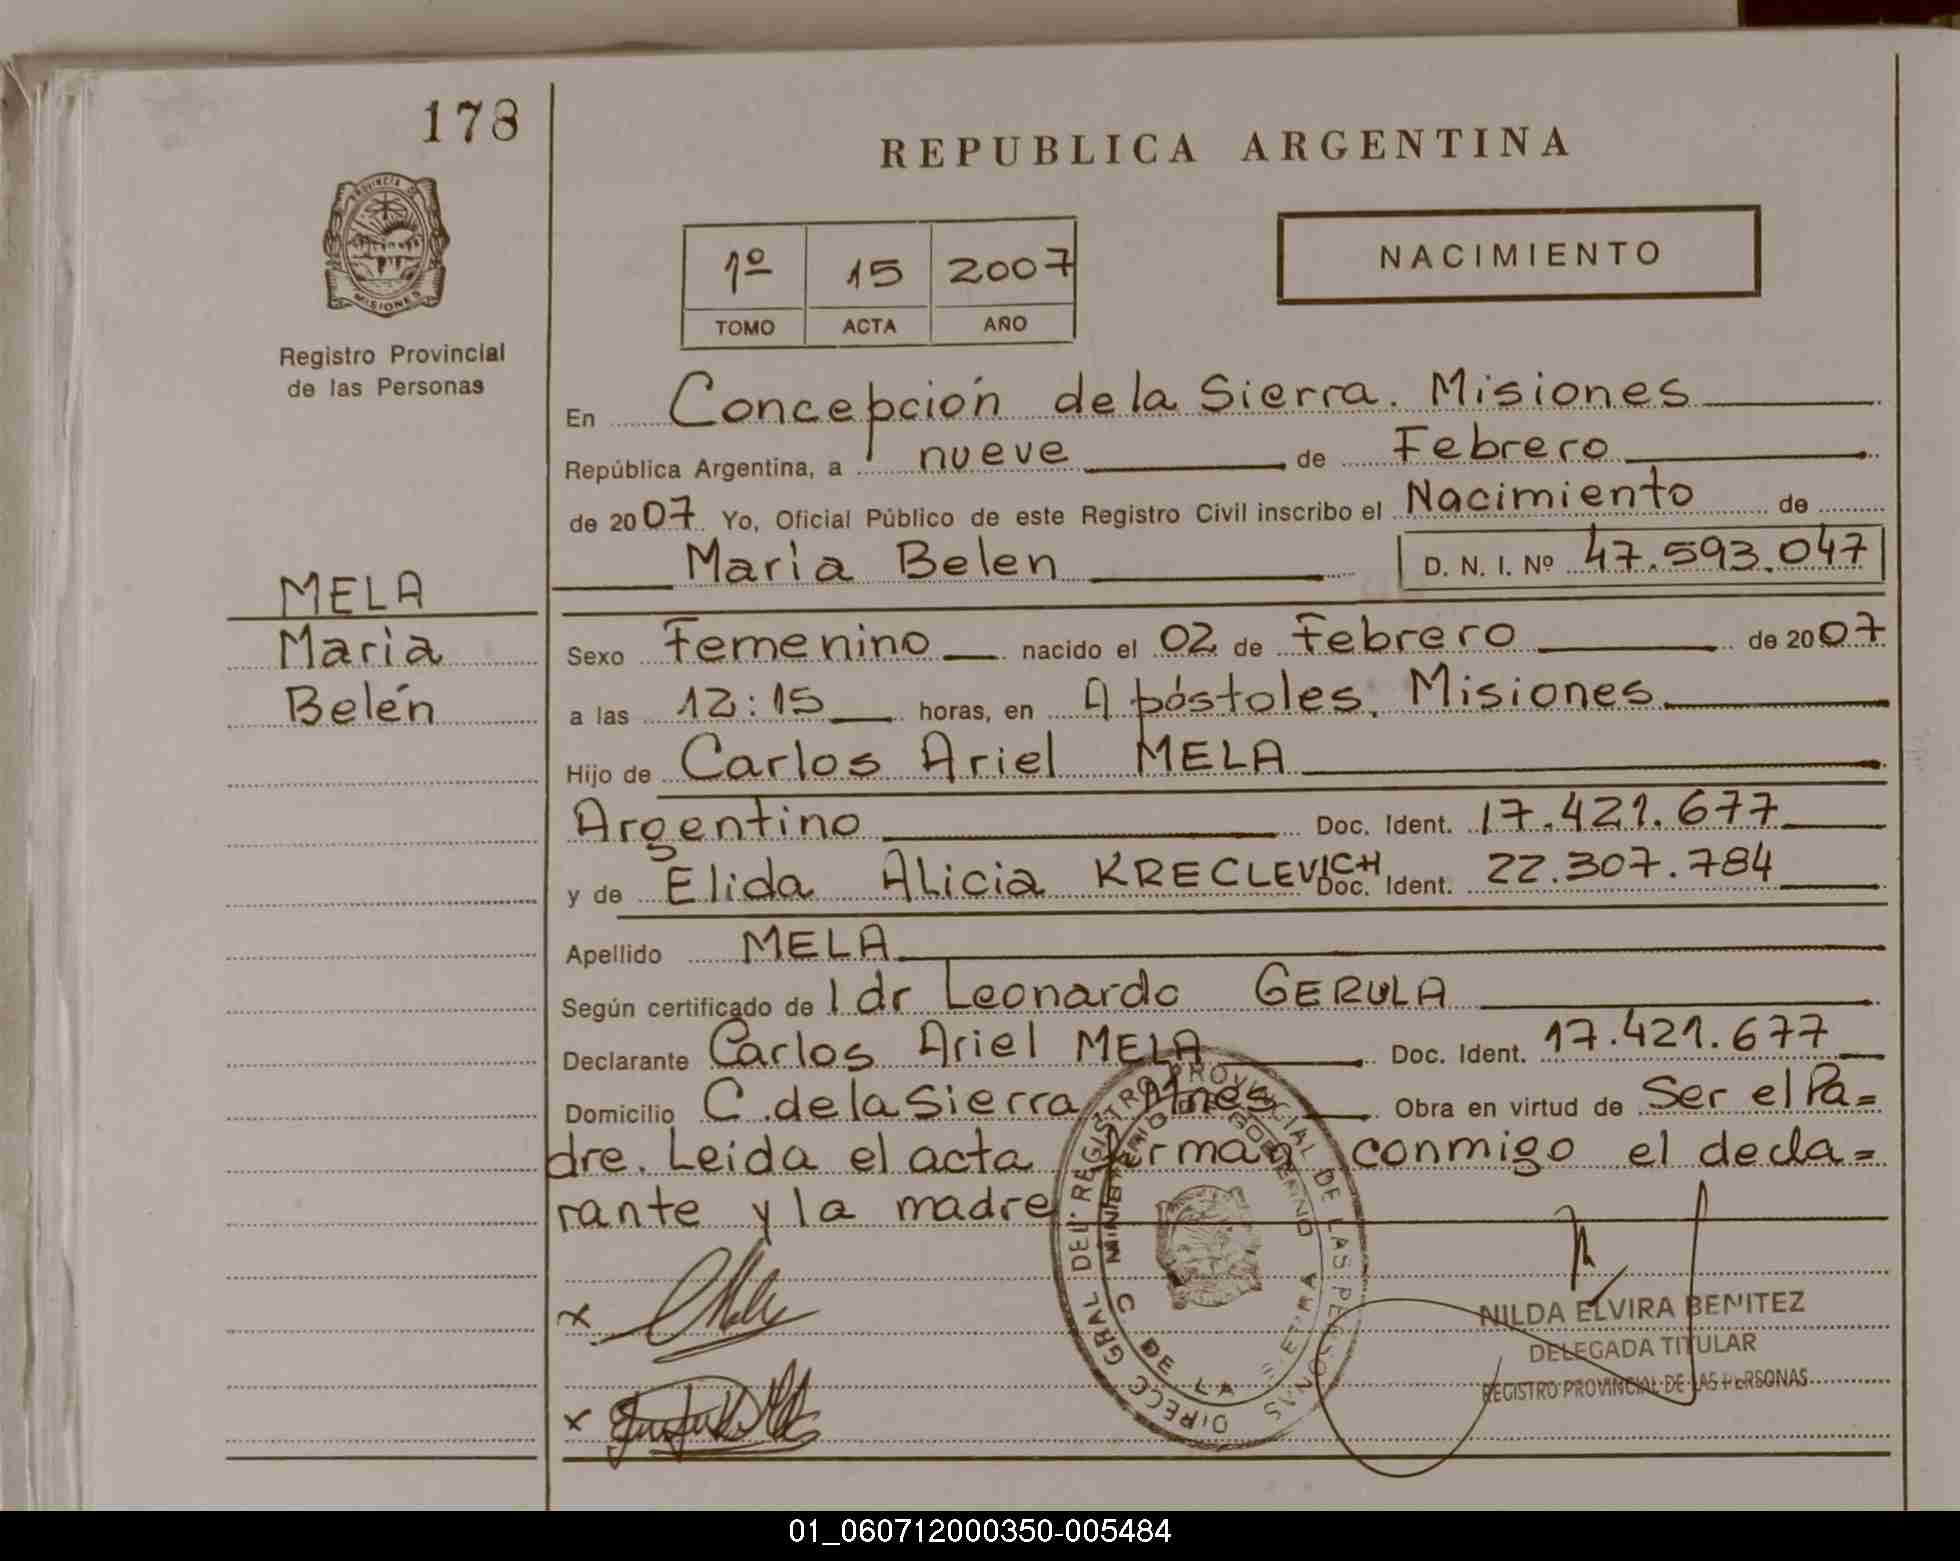 178
PROVINCIA DE
MISIONES
Registro Provincial
de las Personas
REPUBLICA ARGENTINA
1º 15 2007
TOMO ACTA AÑO
NACIMIENTO
En Concepción de la Sierra. Misiones
República Argentina, a nueve de Febrero
de 2007 Yo, Oficial Público de este Registro Civil inscribo el Nacimiento de
Maria Belen D. N. I. Nº 47.593.047
MELA
Maria
Belén
Sexo Femenino nacido el 02 de Febrero de 2007
a las 12:15 horas, en Apóstoles. Misiones
Hijo de Carlos Ariel MELA
Argentino Doc. Ident. 17.421.677
y de Elida Alicia KRECLEVICH Doc. Ident. 22.307.784
Apellido MELA
Según certificado de l dr Leonardo GERULA
Declarante Carlos Ariel MELA Doc. Ident. 17.421.677
Domicilio C. de la Sierra Mnes Obra en virtud de Ser el Pa=
dre. Leida el acta firman conmigo el decla=
rante y la madre
DIRECC GRAL DEL REGISTRO PROVINCIAL DE LAS PERSONAS
MINISTERIO DE GOBIERNO
C DE LA SIERRA
x
x
NILDA ELVIRA BENITEZ
DELEGADA TITULAR
REGISTRO PROVINCIAL DE LAS PERSONAS
01_060712000350-005484